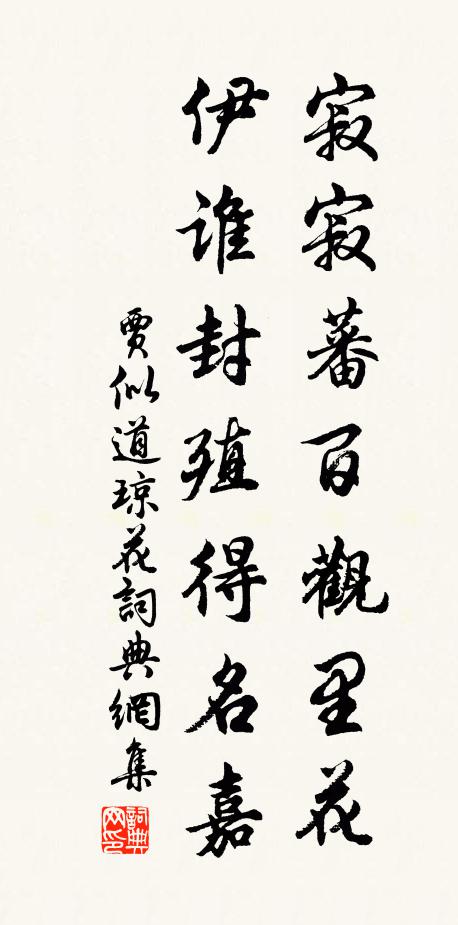 寂寂蕃百觀里花
伊誰封殖得名嘉
賈似道琼花詞典網集
詞典网印